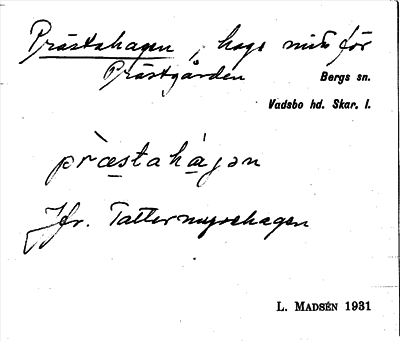 Prästahagen, hage mitt för
Prästgården
Bergs sn.
Vadsbo hd. Skar. l.
præstahagən
Jfr. Tattermyrehagen
L. MADSÉN 1931